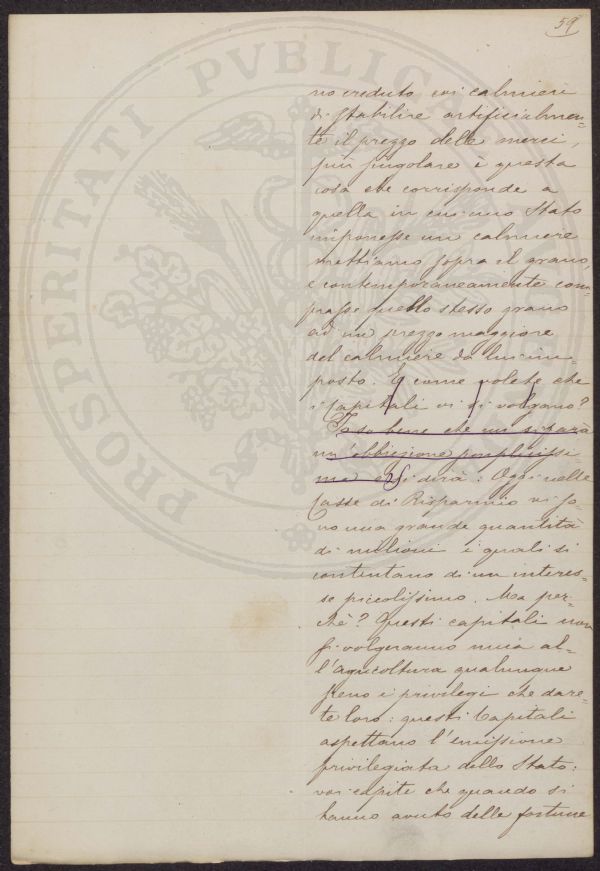 59
no creduto coi calmieri
di stabilire artificialmen-
te il prezzo delle merci,
più singolare è questa
cosa che corrisponde a
quella in cui uno Stato
imponesse un calmiere
mettiamo sopra il grano,
e contemporaneamente com-
prasse quello stesso grano
ad un prezzo maggiore
del calmiere da lui im-
posto. E come volete che
i Capitali vi si volgano?
Io so bene che mi si farà
un'obbiezione
ma e si dirà: Oggi nelle
Casse di Risparmio vi so-
no una grande quantità
di milioni i quali si
contentano di un interes-
se piccolissimo. Ma per-
chè? Questi capitali non
si volgeranno mica al-
l'agricoltura qualunque
sieno i privilegi che dare-
te loro: questi Capitali
aspettano l'emissione
privilegiata dello Stato:
voi capite che quando si
hanno avuto delle fortune
PROSPERITATI PVBLICAE